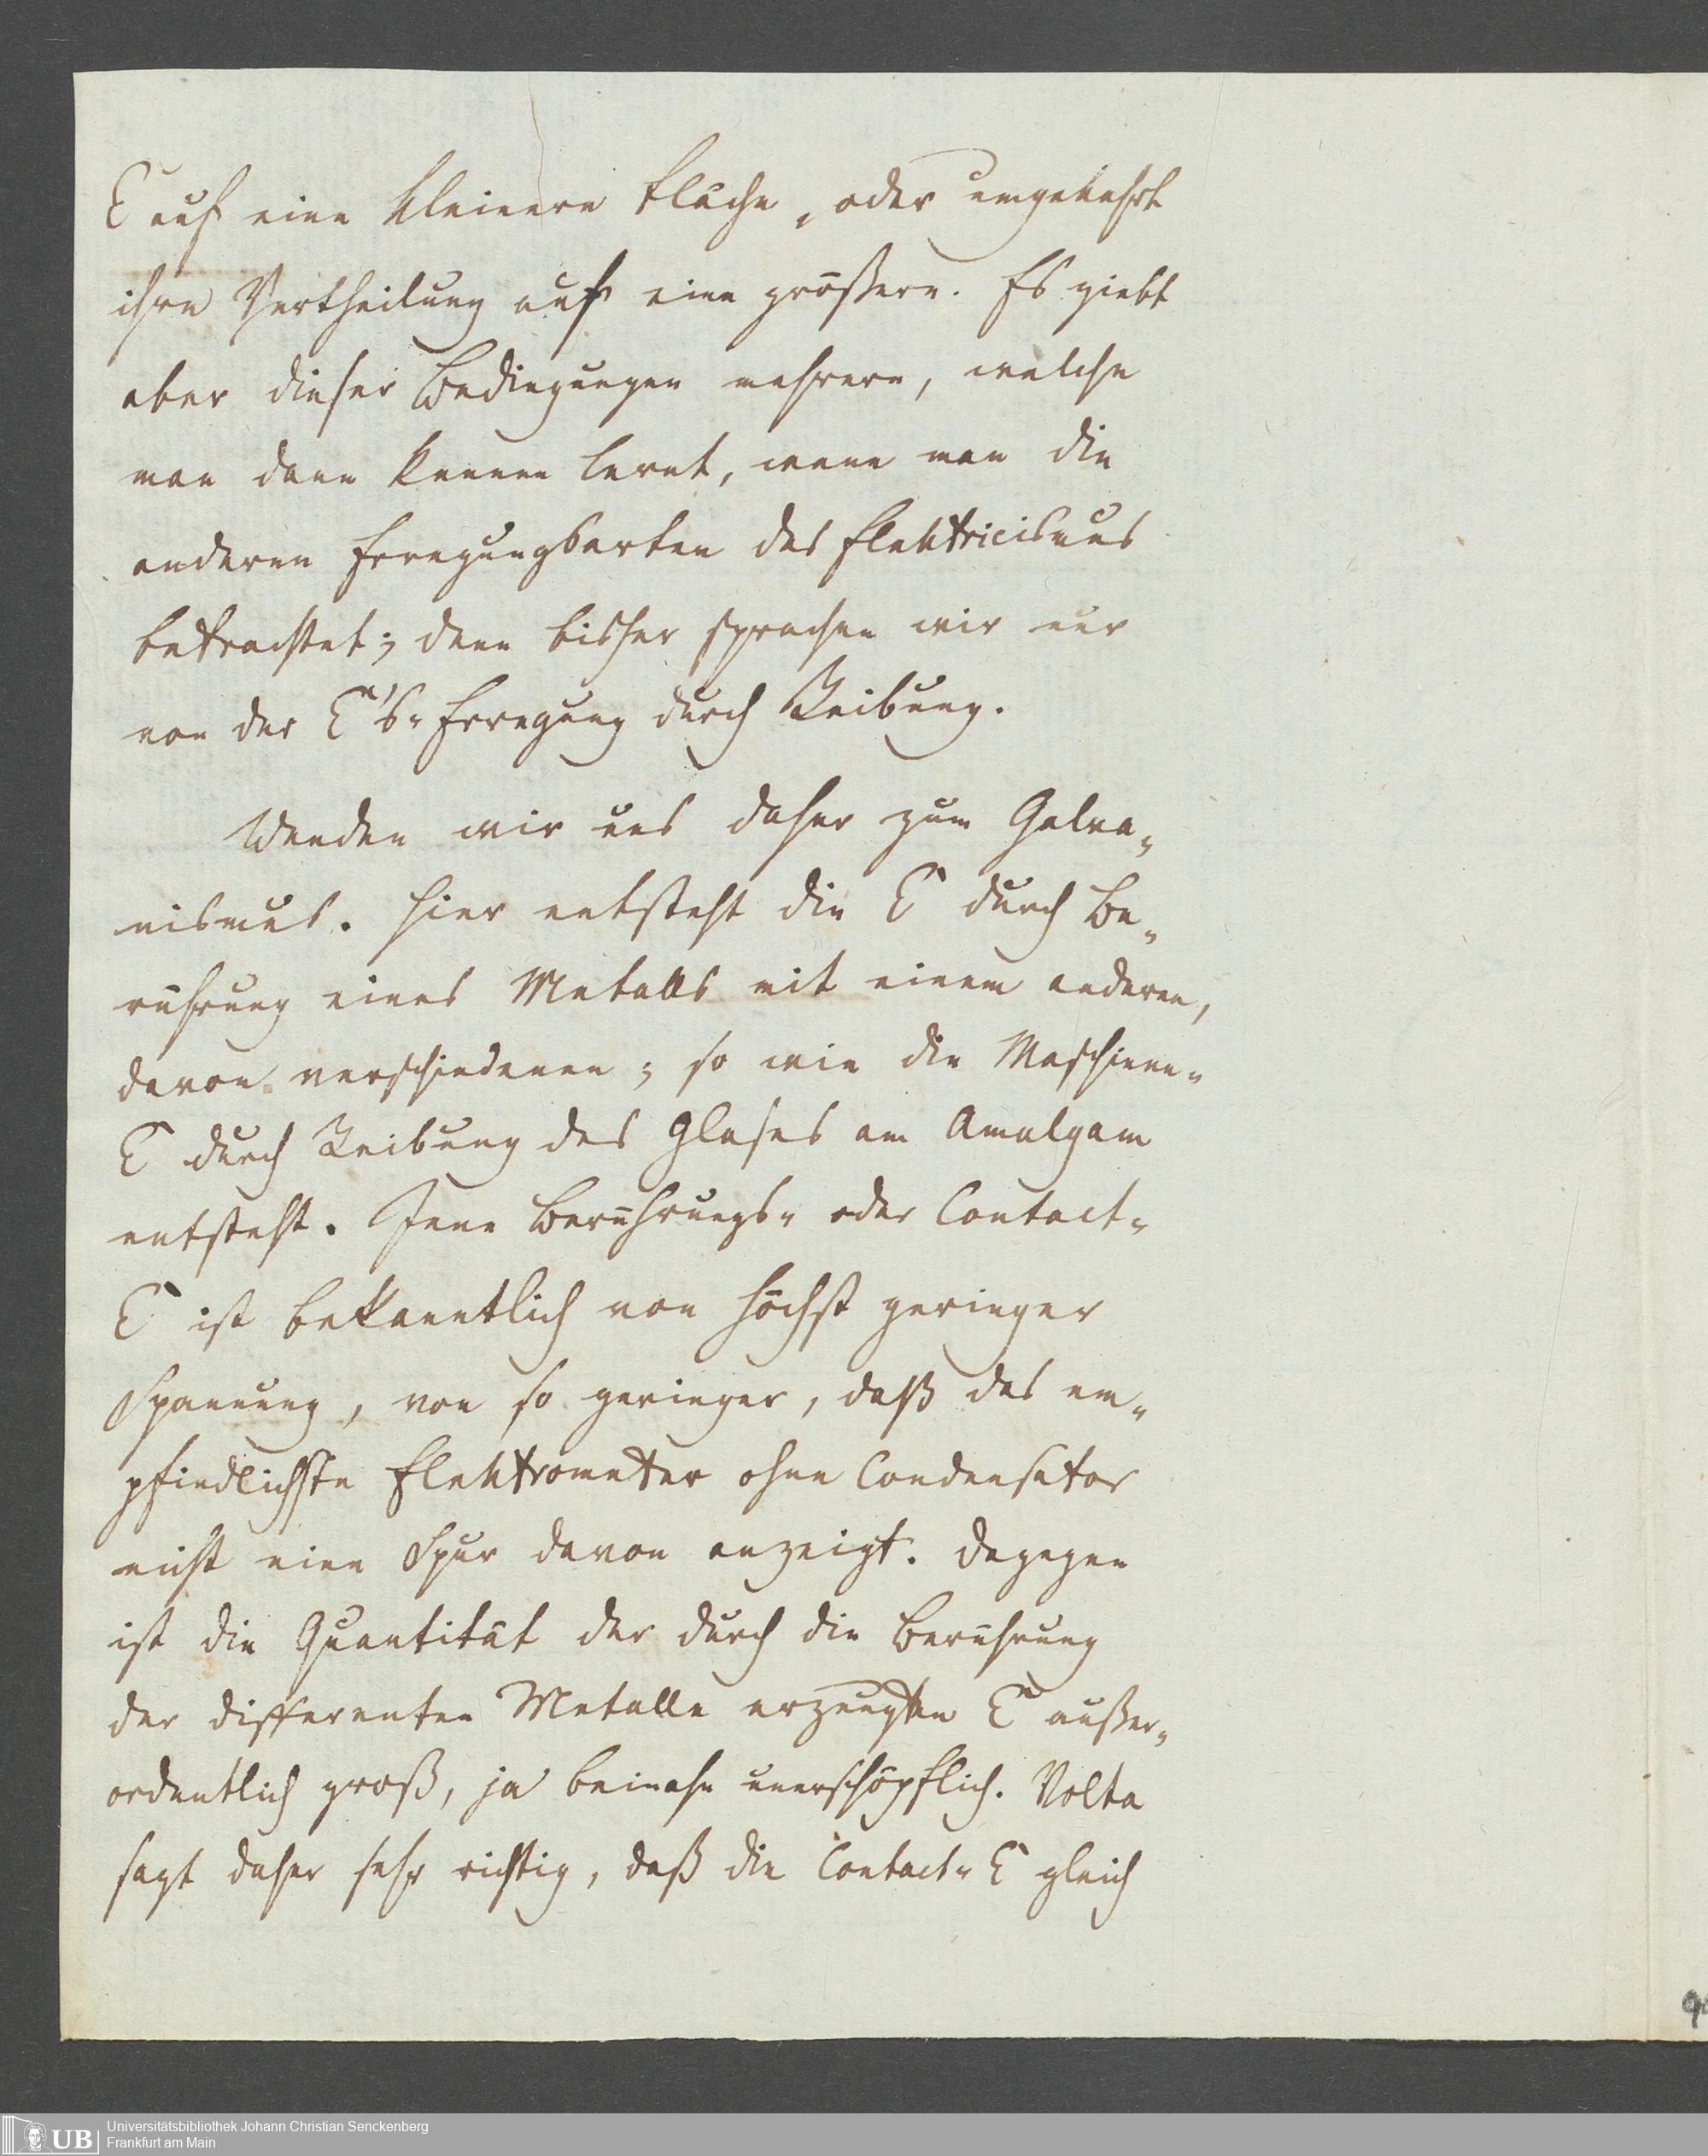 E auf eine kleinere Fläche, oder umgekehrt
ihre Vertheilung auf eine größere. Es giebt
aber dieser Bedingungen mehrere, welche
man dann kennen lernt, wenn man die
anderen Erregungsarten des Elektricismus
betrachtet; denn bisher sprachen wir nur
von der E's-Erregung durch Reibung.
Wenden wir uns daher zum Galva-
nismus. Hier entsteht die E durch Be-
rührung eines Metalls mit einem anderen,
davon verschiedenen; so wie die Maschinen-
E durch Reibung des Glases am Amalgam
entsteht. Jene Berührungs- oder Contact-
E ist bekanntlich von höchst geringer
Spannung, von so geringer, daß das em-
pfindlichste Elektrometer ohne Condensator
nicht eine Spur davon anzeigt. Dagegen
ist die Quantität der durch die Berührung
der differenten Metalle erzeugten E außer-
ordentlich groß, ja beinahe unerschöpflich. Volta
sagt daher sehr richtig, daß die Contact-E gleich
UB Universitätsbibliothek Johann Christian Senckenberg
Frankfurt am Main